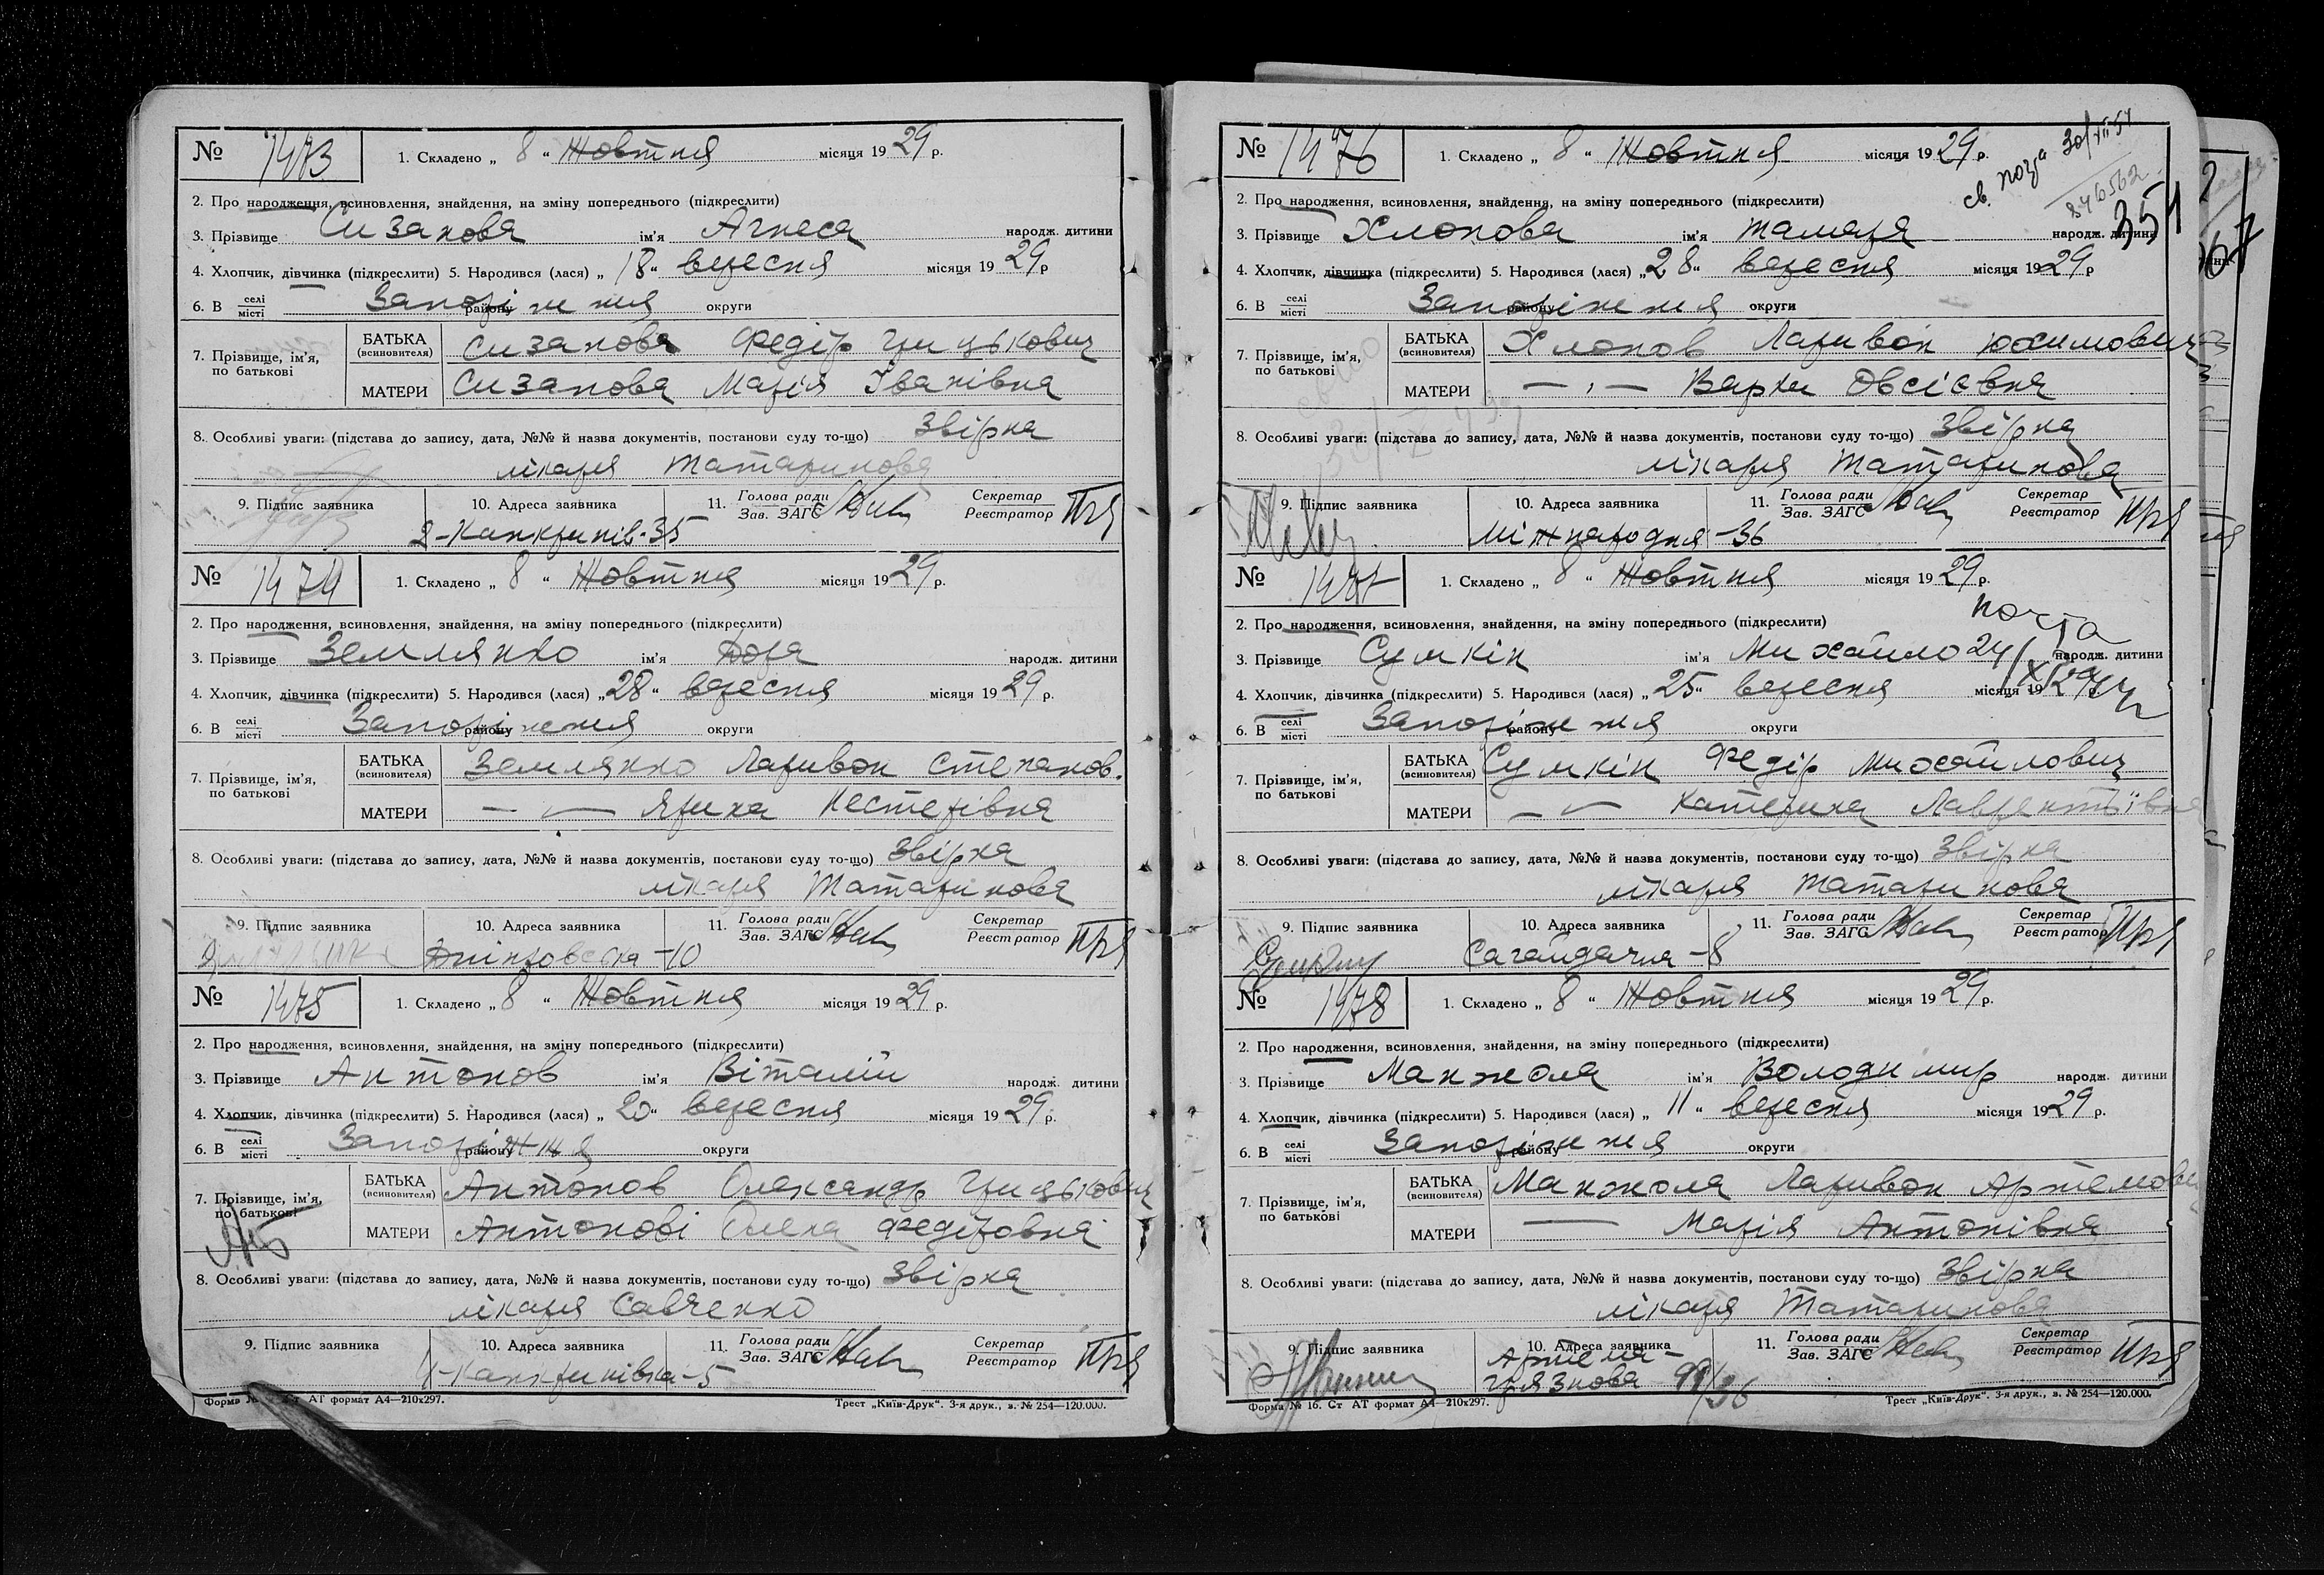 № 1473 1. Складено „ 8 “ Жовтня місяця 1929 р.
2. Про народження, всиновлення, знайдення, на зміну попереднього (підкреслити)
3. Прізвище Сизанова ім'я Агнеса народж. дитини
4. Хлопчик, дівчинка (підкреслити) 5. Народився (лася) „ 18 “ вересня місяця 1929 р
6. В селі місті Запоріжжя району округи
7. Прізвище, ім'я, по батькові БАТЬКА (всиновителя) Сизанова Федір Грицькович
МАТЕРИ Сизанова Марія Іванівна
8. Особливі уваги: (підстава до запису, дата, №№ й назва документів, постанови суду то-що) Звірка
лікаря Татаринова
9. Підпис заявника 10. Адреса заявника 11. Голова ради Зав. ЗАГС Секретар Реєстратор
2-Канкринів-35
№ 1474 1. Складено „ 8 “ Жовтня місяця 1929 р.
2. Про народження, всиновлення, знайдення, на зміну попереднього (підкреслити)
3. Прізвище Землянко ім'я Дора народж. дитини
4. Хлопчик, дівчинка (підкреслити) 5. Народився (лася) „ 28 “ вересня місяця 1929 р.
6. В селі місті Запоріжжя району округи
7. Прізвище, ім'я, по батькові БАТЬКА (всиновителя) Землянко Ларивон Степанов.
МАТЕРИ — „ — Ярина Нестерівна
8. Особливі уваги: (підстава до запису, дата, №№ й назва документів, постанови суду то-що) Звірка
лікаря Татаринова
9. Підпис заявника 10. Адреса заявника 11. Голова ради Зав. ЗАГС Секретар Реєстратор
-10
№ 1475 1. Складено „ 8 “ Жовтня місяця 1929 р.
2. Про народження, всиновлення, знайдення, на зміну попереднього (підкреслити)
3. Прізвище Антонов ім'я Віталій народж. дитини
4. Хлопчик, дівчинка (підкреслити) 5. Народився (лася) „ 20 “ вересня місяця 1929 р.
6. В селі місті Запоріжжя району округи
7. Прізвище, ім'я, по батькові БАТЬКА (всиновителя) Антонов Олександр Грицькович
МАТЕРИ Антонові Олена Федоровна
8. Особливі уваги: (підстава до запису, дата, №№ й назва документів, постанови суду то-що) Звірка
лікаря Савченко
9. Підпис заявника 10. Адреса заявника 11. Голова ради Зав. ЗАГС Секретар Реєстратор
Канкринівка-5
Форма АТ формат А4—210х297. Трест „Київ-Друк“. 3-я друк., в. № 254—120.000.
№ 1476 1. Складено „ 8 “ Жовтня місяця 1929 р.
св. 30/XII 51
846562
351
2. Про народження, всиновлення, знайдення, на зміну попереднього (підкреслити)
3. Прізвище Хлопова ім'я Тамара народж. дитини
4. Хлопчик, дівчинка (підкреслити) 5. Народився (лася) „ 28 “ вересня місяця 1929 р
6. В селі місті Запоріжжя району округи
7. Прізвище, ім'я, по батькові БАТЬКА (всиновителя) Хлопов Ларивон Юхимович
МАТЕРИ — „ — Варка Овсієвна
8. Особливі уваги: (підстава до запису, дата, №№ й назва документів, постанови суду то-що) Звірка
лікаря Татаринова
9. Підпис заявника 10. Адреса заявника 11. Голова ради Зав. ЗАГС Секретар Реєстратор
Міжнародня -36
№ 1477 1. Складено „ 8 “ Жовтня місяця 1929 р.
почта
2. Про народження, всиновлення, знайдення, на зміну попереднього (підкреслити)
3. Прізвище Сумкін ім'я Михайло народж. дитини
4. Хлопчик, дівчинка (підкреслити) 5. Народився (лася) „ 25 “ вересня місяця 1929
6. В селі місті Запоріжжя району округи
7. Прізвище, ім'я, по батькові БАТЬКА (всиновителя) Сумкін Федір Михайлович
МАТЕРИ — „ — Катерина Лаврентіївна
8. Особливі уваги: (підстава до запису, дата, №№ й назва документів, постанови суду то-що) Звірка
лікаря Татаринова
9. Підпис заявника 10. Адреса заявника 11. Голова ради Зав. ЗАГС Секретар Реєстратор
Сагайдачна -8
№ 1478 1. Складено „ 8 “ Жовтня місяця 1929 р.
2. Про народження, всиновлення, знайдення, на зміну попереднього (підкреслити)
3. Прізвище Манжола ім'я Володимир народж. дитини
4. Хлопчик, дівчинка (підкреслити) 5. Народився (лася) „ 11 “ вересня місяця 1929 р.
6. В селі місті Запоріжжя району округи
7. Прізвище, ім'я, по батькові БАТЬКА (всиновителя) Манжола Ларивон Артемович
МАТЕРИ — Марія Антонівна
8. Особливі уваги: (підстава до запису, дата, №№ й назва документів, постанови суду то-що) Звірка
лікаря Татаринова
9. Підпис заявника 10. Адреса заявника 11. Голова ради Зав. ЗАГС Секретар Реєстратор
Грязнова 99/36
Форма № 16. Ст АТ формат А4—210х297. Трест „Київ-Друк“. 3-я друк., в. № 254—120.000.